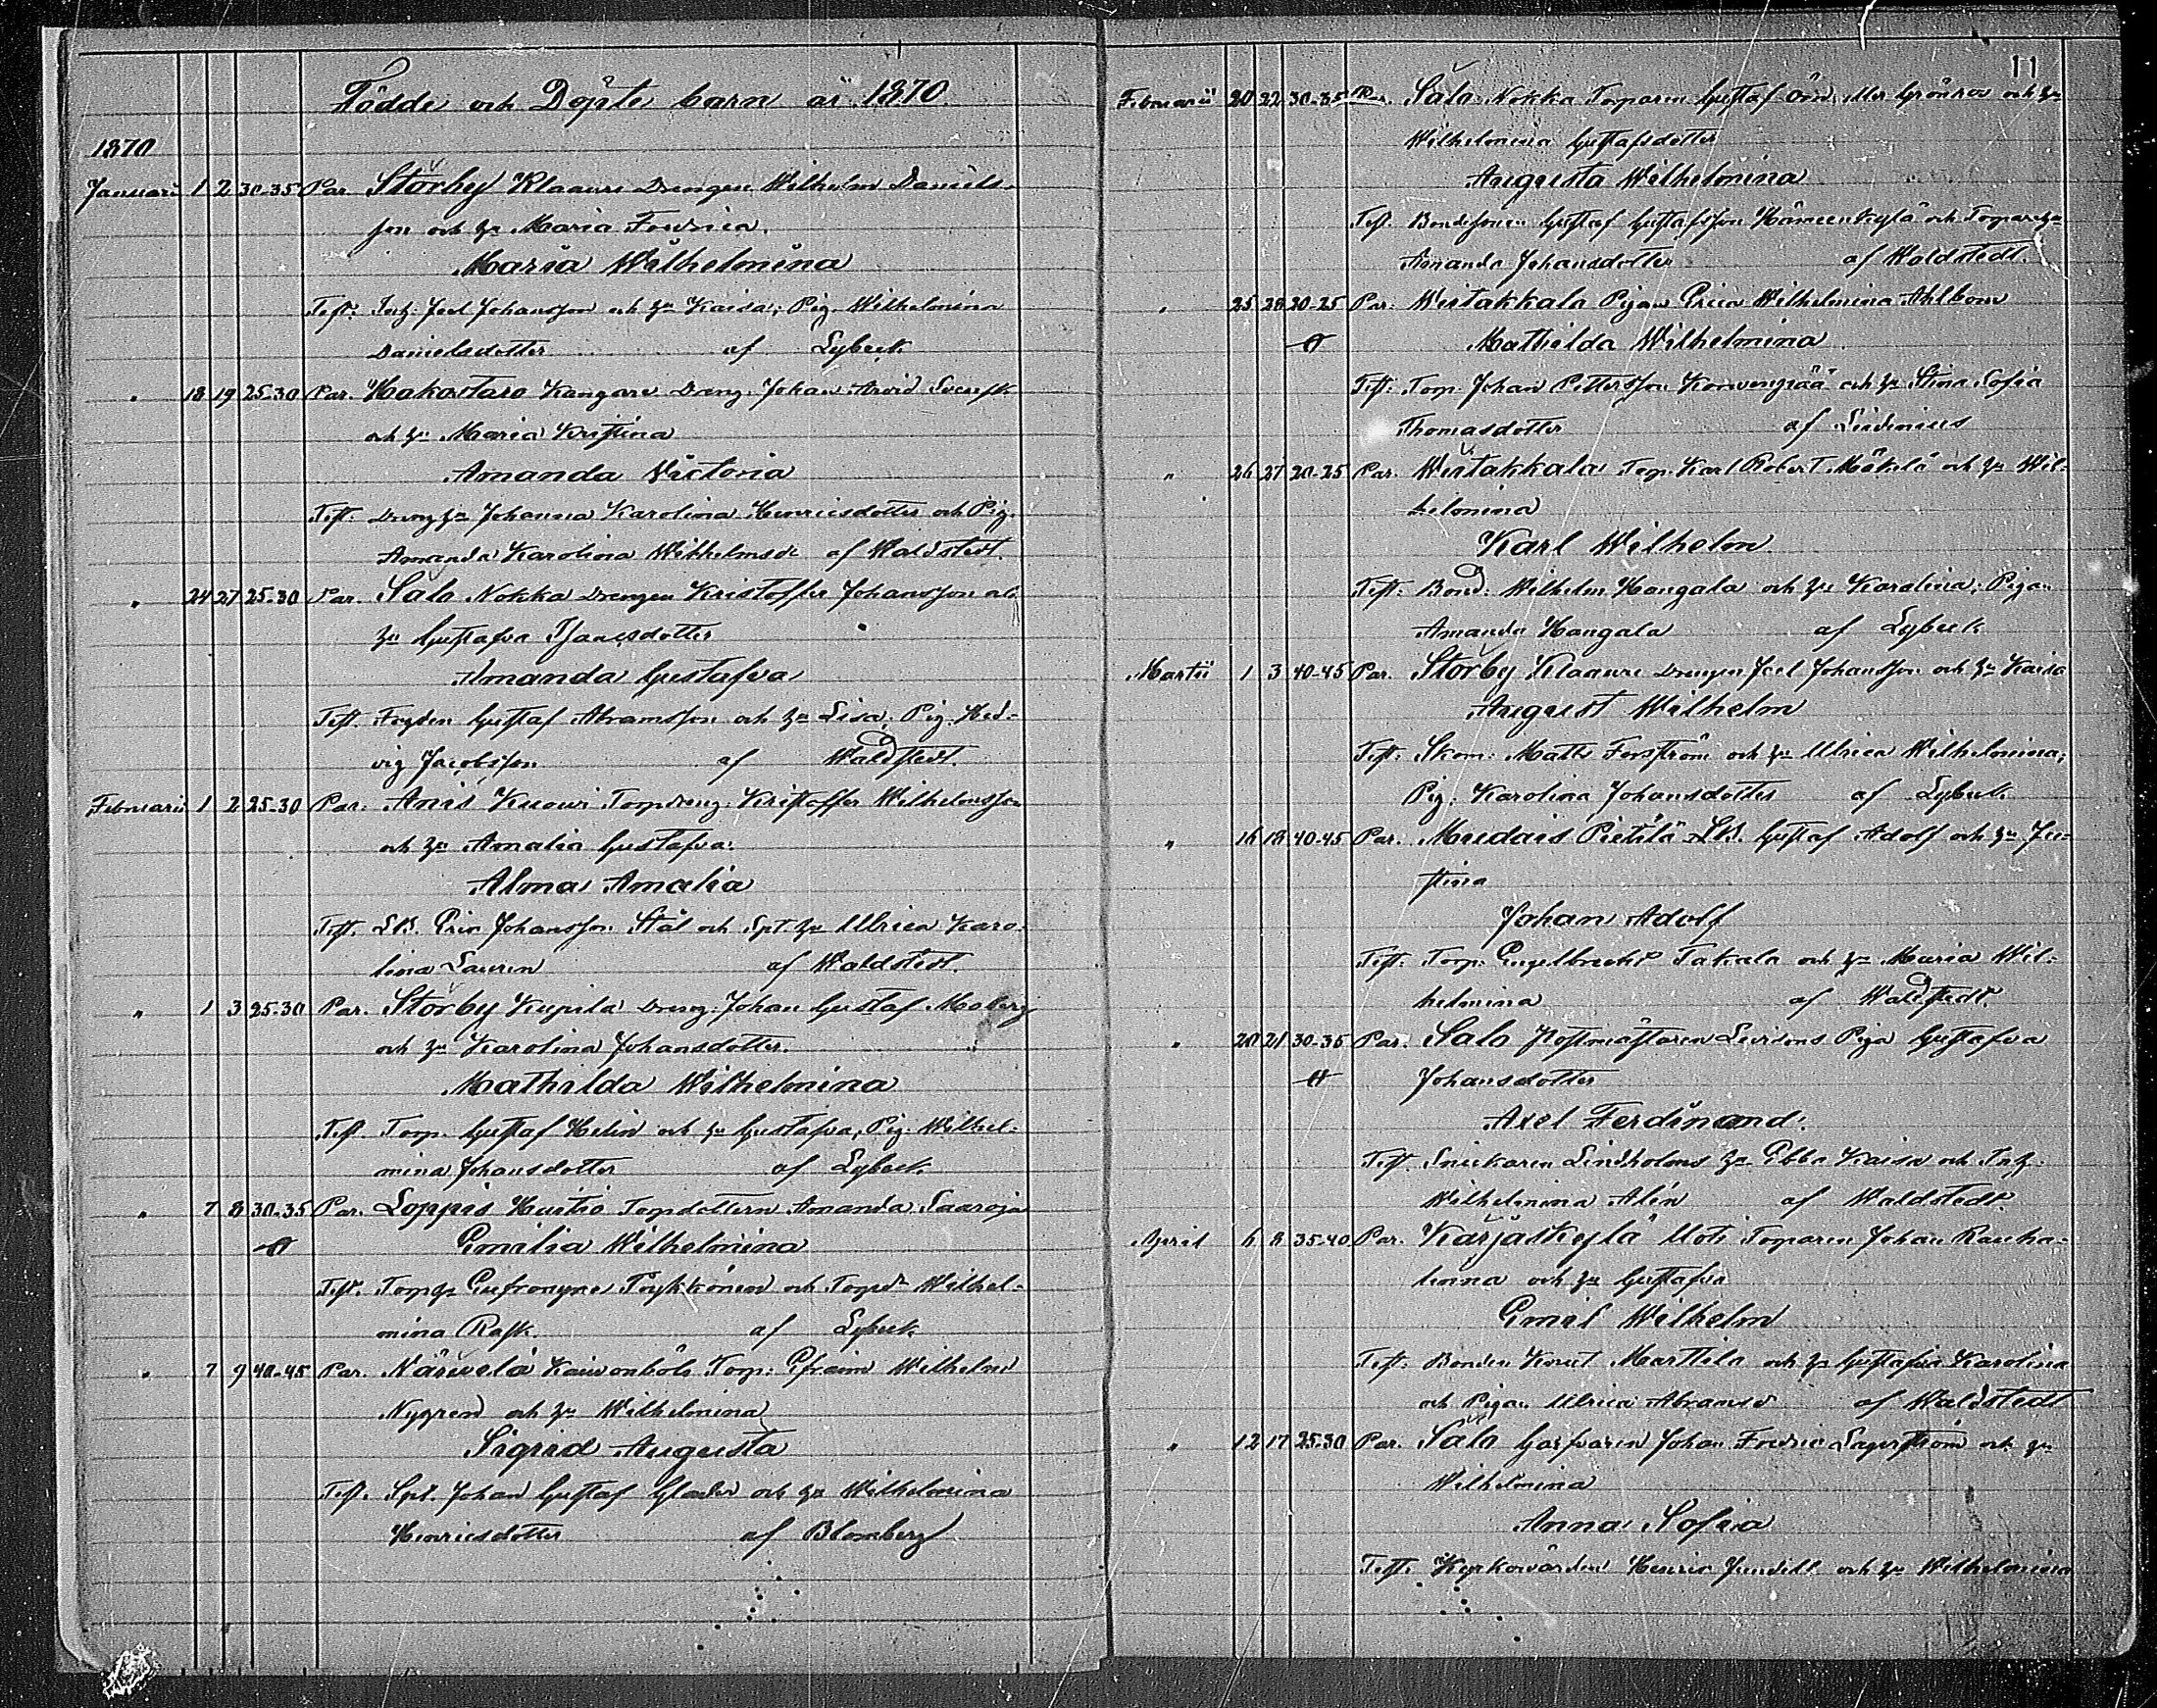 Födde och Döpte barn år 1870.
1870
Januarii 1 2 30-35 Par. Storby Klaavu Drengen Wilhelm Daniels-
son och h: Maria Fredrica.
Maria Wilhelmina
Test: Inh: Joel Johansson och h: Kaisa; Pig. Wilhelmina
Danielsdotter af Lybeck.
" 18 19 25-30 Par. Hakostaro Kangare Dreng. Johan Arvid
och h: Maria Kristina
Amanda Victoria
Test: Dreng h: Johanna Karolina Henricsdotter och Pig.
Amanda Karolina Wilhelmsd: af Waldstedt.
" 24 27 25-30 Par. Salo Nokka Drengen Kristoffer Johansson och
h: Gustafva Isaacsdotter
Amanda Gustafva
Test. Gustaf Abramsson och h: Lisa; Pig. Hed-
vig Jacobsson af Waldstedt.
Februarii 1 2 25-30 Par. Anis Kuowi Torpdreng: Kristoffer Wilhelmsson
och h: Amalia Gustafva.
Alma Amalia
Test. Eric Johansson Stål och h: Ulrica Karo-
lina Lauren af Waldstedt.
" 1 3 25-30 Par. Storby Kupila Dreng: Johan Gustaf Moberg
och h: Karolina Johansdotter.
Mathilda Wilhelmina
Test. Torp. Gustaf Helin och h: Gustafva, Pig. Wilhel-
mina Johansdotter af Lybeck.
" 7 8 30-35 Par. Loppis Hurtio Torpdottern Amanda Saaroja
Emilia Wilhelmina
Test. Torph: Eufrosyne Pyykkönen och Torpd: Wilhel-
mina Rask. af Lybeck
" 7 9 40-45 Par. Närvelä Kaivonböle Torp: Efraim Wilhelm
Nygren och h: Wilhelmina
Sigrid Augusta
Test. Johan Gustaf Glader och h: Wilhelmina
Henricsdotter af Blomberg
11
Februarii 20 22 30-35 Par. Salo Nokka Torparen Gustaf Örn eller Grönroos och h:
Wilhelmina Gustafsdotter
Augusta Wilhelmina
Test. Bondesonen Gustaf Gustafsson Hämeenkylä och Torpareh:
Amanda Johansdotter af Waldstedt.
" 25 28 20-25 Par: Wistakkala Pigan Erica Wilhelmina Ahlbom
Mathilda Wilhelmina
Test: Torp. Johan Pettersson Korvenpää och h: Stina Sofia
Thomasdotter af Lindenius
" 26 27 20-25 Par. Wistakkala Torp. Karl Robert Mäkelä och h: Wil-
helmina
Karl Wilhelm
Test: Bond: Wilhelm Hangala och h: Karolina; Pigan
Amanda Hangala af Lybeck
Martii 1 3 40-45 Par. Storby Klaavu Drengen Joel Johansson och h: Kaisa
August Wilhelm
Test: Skom: Matts Forsström och h: Ulrica Wilhelmina;
Pig: Karolina Johansdotter af Lybeck.
" 16 18 40-45 Par. Muldais Pietilä Gustaf Adolf och h: Ju-
stina
Johan Adolf
Test: Torp: Engelbrecht Takala och h: Maria Wil-
helmina af Waldstedt.
" 20 21 30-35 Par. Salo Postmästaren Levisons Piga Gustafva
Johansdotter
Axel Ferdinand.
Test. Snickaren Lindholms h: Ebba Kaisa och Inh:
Wilhelmina Alén af Waldstedt.
April 6 8 35-40 Par. Kärjäskylä Uoti Torparen Johan Rauha-
linna och h: Gustafva
Emil Wilhelm
Test: Bonden Knut Marttila och h: Gustafva Karolina
och Pigan Ulrica Abramsd: af Waldstedt
" 12 17 25-30 Par. Salo Garfvaren Johan Fredric Lagerström och h:
Wilhelmina
Anna Sofia
Test. Kyrkovärden Henric Jundell och h: Wilhelmina